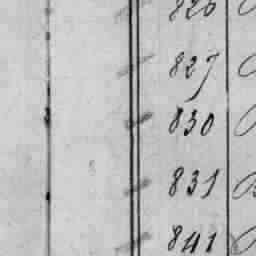 826
827
830
831
841